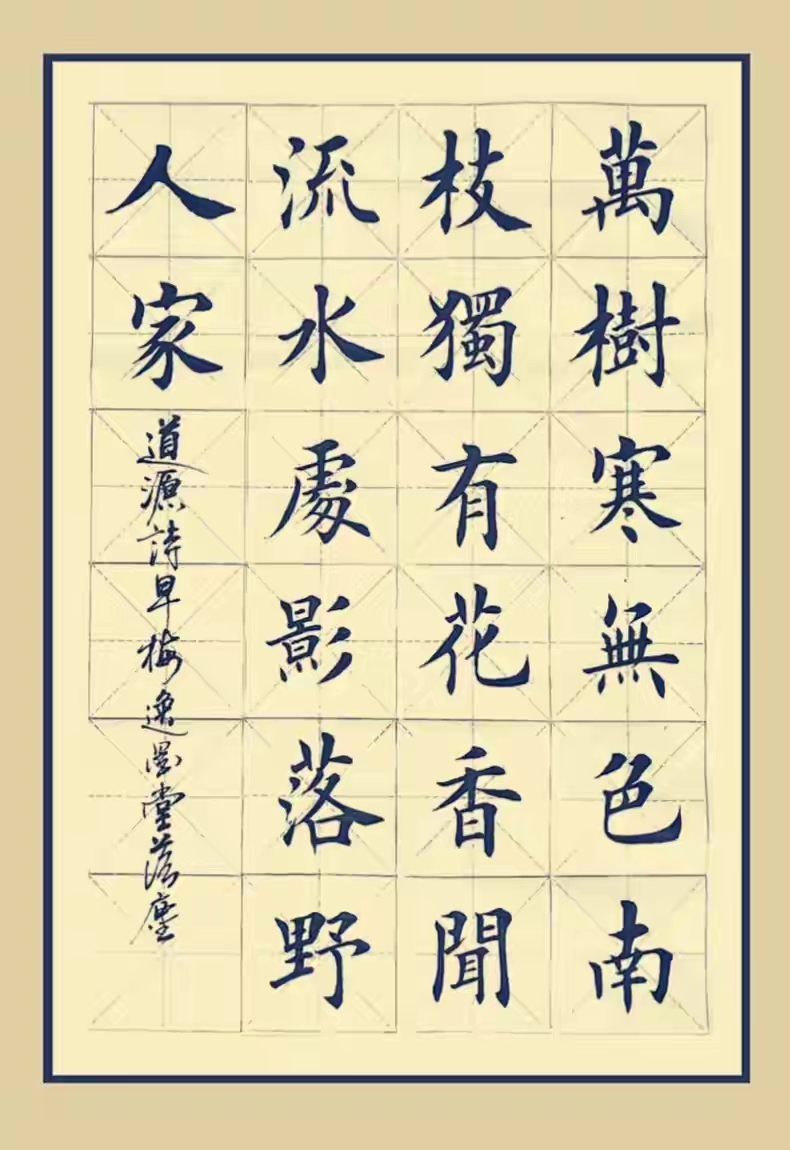 萬樹寒無色南
枝獨有花香聞
流水處影落野
人家
道源詩早梅逸墨堂落塵